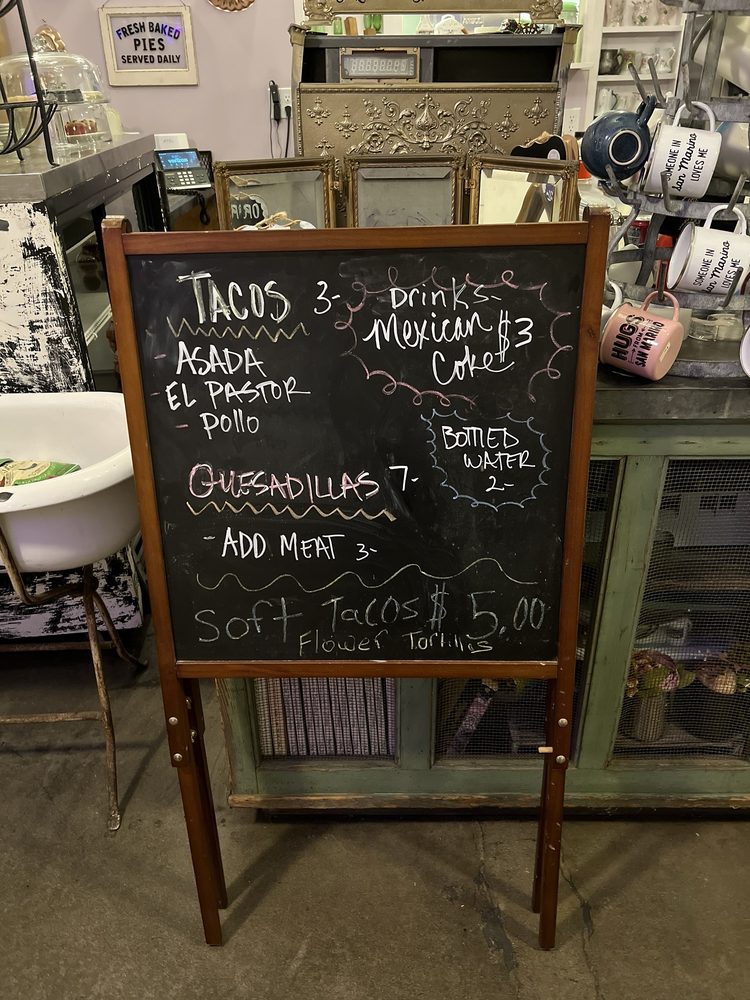 FRESH BAKED
PIES
SERVED DAILY
verizon
TACOS 3-
- ASADA
- EL PASTOR
- Pollo
QUESADILLAS 7-
- ADD MEAT 3-
Drinks-
Mexican $3
Coke
BOTTLED
WATER
2-
Soft Tacos $ 5.00
Flower Tortillas
SOMEONE IN
San Marino
LOVES ME
SOMEONE IN
San Marino
LOVES ME
HUGS
FROM
SAN MARINO